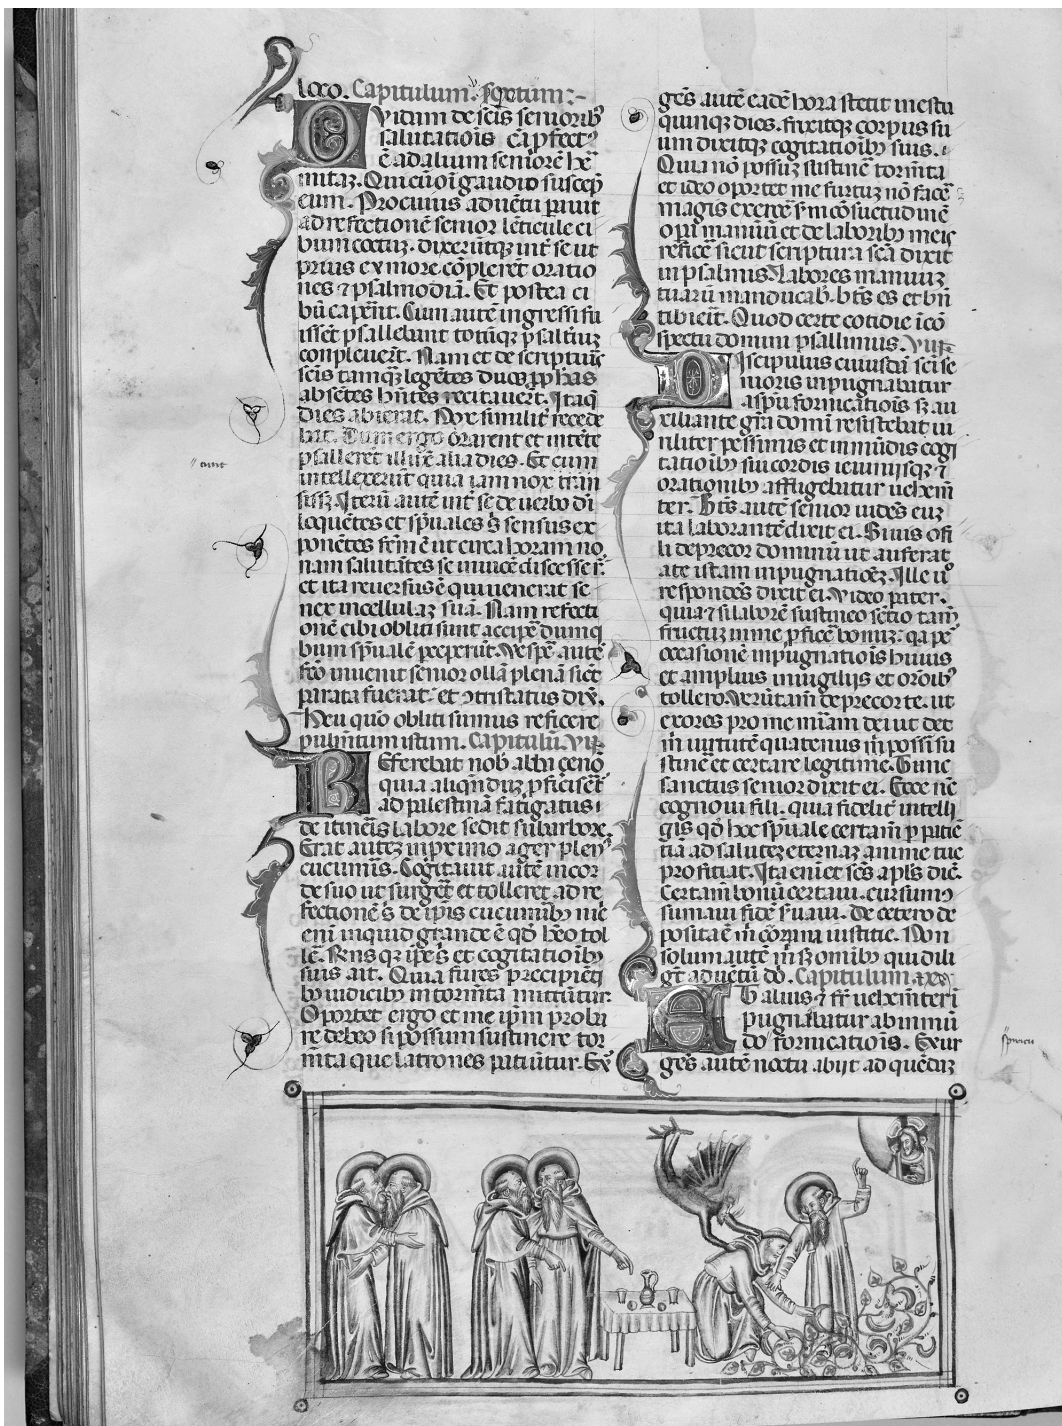 loco. Capitulum. sextum:-
Quidam de scis seniorib9
salutatiois cā pfect9
ē ad alium seniorē he
mitaz. Qui cū oi gaudio suscep̄
eum. Pro cuius aduētu parauit
ad refectionē senior lēticule ci
bum coctuz. dixerūtq int se ut
prius ex more cōplerēt oratio
nes ⁊ psalmodiā. Et postea ci
bū capēnt. Cum autē ingressi fu
issēt psallebant totūq psaltīuz
conpleuerūt. Nam et de scripturis
scis tamq legētes duos pphas
absētes hn̄tes recitauerūt. Itaq
dies abierat. Nox similit recede
bat. Dum ergo orarent et intēte
psallerēt illuxē alia dies. Et cum
eunt
intellexerūt quia iam nox tran
sisz. Iterū autē int se de uerbo dī
loquētes et spūales s sensus ex
ponētes fcm ē ut circa horam no
nam salutātes se inuicē discesser̄.
et ita reuersus ē qui uenerat se
nex in cellulaz suā. Nam refecti
onē cibi obliti sunt accipē dumq
bum spūalē pceperūt. Vespē autē
fcō inuenit senior ollā plenā sic̄
parata fuerat. et ↄtristatus dix̄.
Heu quō obliti sumus reficere
pulm̄tum istum. Capitulū. VII.
Referebat nob abbi çenō
quia aliqn̄ duz pficiseēt
ad palestinā fatigatus
de itineīs labore sedit sub arbore.
Erat autez in pximo ager plen9
cucumis. Cogitauit autē in cor
de suo ut surgēt et tolleret ad re
fectionē s de ipis cucumib9 nic
eni inquid grande ē qd hēo tol
lē. Rn̄sqz ipēs et cogitatioib9
suis ait. Quia fures precipiēti
b9 iudicib9 in torm̄ta mittūtur.
Oportet ergo et me ipm proba
re debeo si possum sustinere tor
m̄ta que latrones patiūtur. Ex
gēs autē eadē hora stetit in estu
quinqz dies. frixitqz corpus su
um dixitqz cogitatioib9 suis.
Quia nō possuz sustinē torm̄ta
et ideo oportet me furtuz nō facē
magis exercē s̄m cōsuetudinē
opa manuū et de laborib9 meis
reficē sicut scriptura scā dixit
in psalmis. Labores manuuz
tuarū manducab. bts es et bn̄
tibi eīt. Quod certe cotidie in cō
spectu domini psallimus. VIII.
Discipulus cuiusdā sci se
nioris inpugnabatur
a spū fornicatiois sz au
xiliante gra domi resistebat ui
riliter pessimis et inmūdis cogi
tatioib9 sui cordis ieiuniisqz ⁊
orationib9 affligebatur uehem̄
ter. Bts autē senior uidēs euz
ita laborantē dixit ei. Si uis o fi
li deprecor dominū ut auferat
a te istam inpugnatioez. Ille uo
respondēs dixit ei. Video pater.
quia ⁊ si laborē sustineo sētio tam̄
fructuz in me pficē bonuz: qa p
occasionē inpugnatiois huius
et amplius in uigiliis et orōib9
tollero. Verūtam̄ deprecor te. ut
exores pro me miam dei ut det
m uirtutē quatenus m possi su
stinē et certare legitime. Tunc
sanctus senior dixit ei. Ecce nc
cognoui fili. quia fidelit intelli
gis qd hoc spūale certam̄ p patiē
tiā ad salutez eternaz anime tue
proficiat. Ita eni et scs apls dic.
Certam̄ bonū certaui. cursum9
sumaui fidē suaui. De cetero de
posita ē m corona iusticie. Non
solum autē m sz omib9 qui dili
gt aduētū do. Capitulum.
Et alius fr uehem̄ter ī
pugnabatur ab inmū
do fornicatiois. Exur
spiritu
gēs autē noctu abiit ad quēdaz